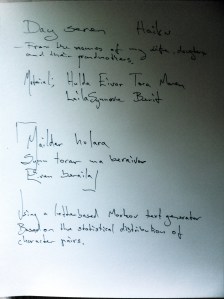 Day saren Haiku
- From the names of my wife, daughters
and their grandmothers.
Material: Hulda Eivor Tara Maren
Laila Synnøve Berit
Mailder halara
Synn torar ma beraiver
Even baraila
Using a letterbased Markov text generator
Based on the statistical distribution of
character pairs.